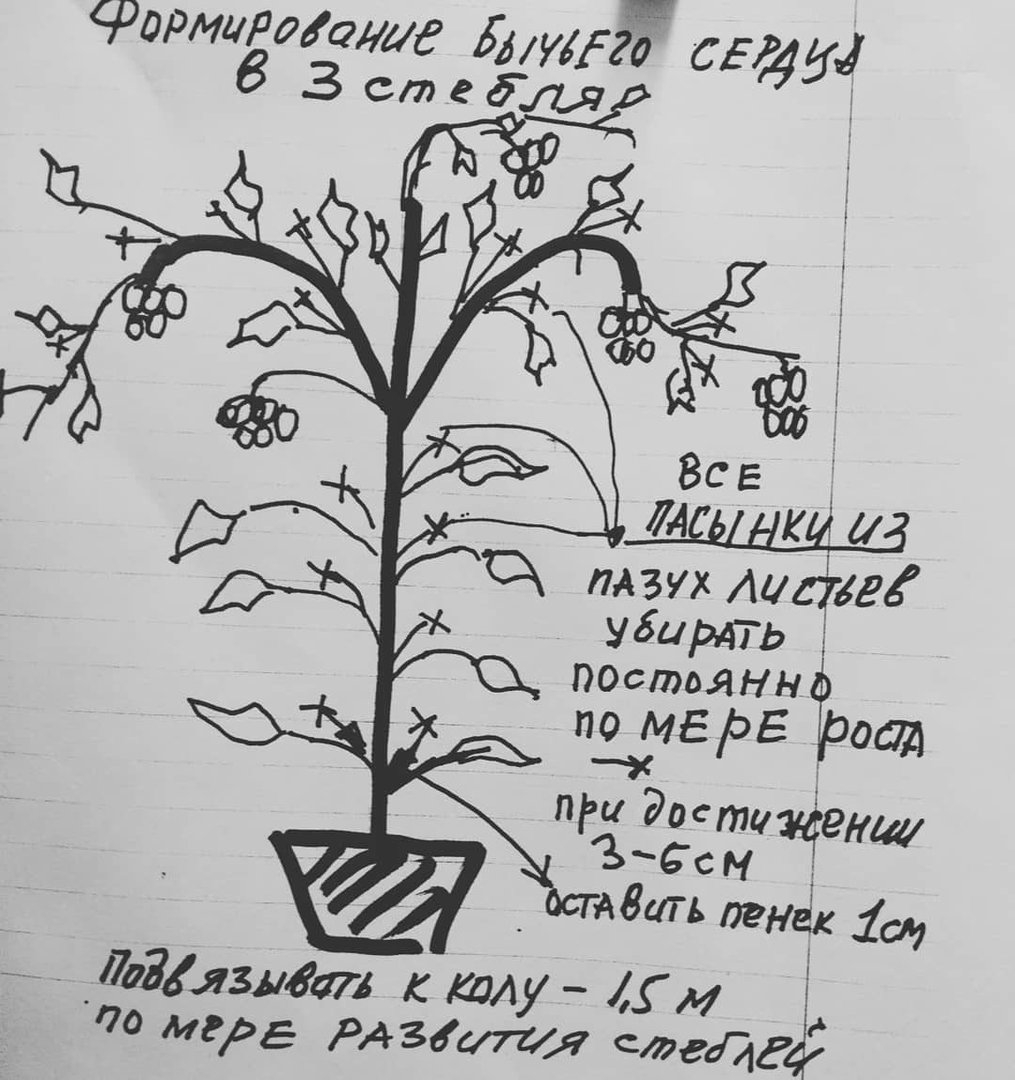 Формирование Бычьего сердца
в 3 стебля
ВСЕ
ПАСЫНКИ ИЗ
пазух листьев
убирать
постоянно
по мере роста
при достижении
3-6 см
оставить пенек 1см
Подвязывать к колу - 1,5 м
по мере развития стеблей